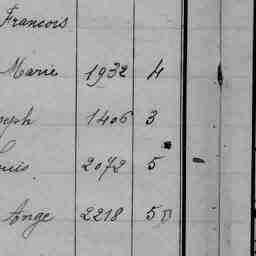 Francois
Marie 1932 4
seph 1406 3
ouis 2072 5
Ange 2218 5